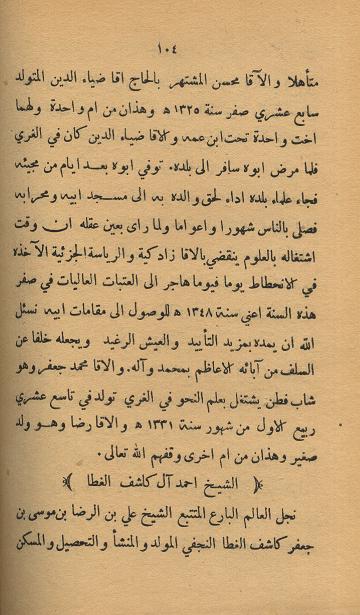 ١٠٤
متأهلا والآقا محسن المشتهر بالحاج اقا ضياء الدين المتولد
سابع عشري صفر سنة ١٣٢٥ ه وهذان من ام واحدة ولهما
اخت واحدة تحت ابن عمه والاقا ضياء الدين كان في الغري
فلما مرض ابوه سافر الى بلده. توفي ابوه بعد ايام من مجيئه
فجاء علماء بلده اداء لحق والده به الى مسجد ابيه ومحرابه
فصلى بالناس شهورا واعواما ولما راى بعين عقله ان وقت
اشتغاله بالعلوم ينقضي بالاقا زادكية والرياسة الجزئية الآخذة
في الانحطاط يوما فيوما هاجر الى العتبات العاليات في صفر
هذه السنة اعني سنة ١٣٤٨ ه للوصول الى مقامات ابيه نسئل
الله ان يمده بمزيد التأييد والعيش الرغيد ويجعله خلفا عن
السلف من آبائه الاعاظم بمحمد وآله. والاقا محمد جعفر وهو
شاب فطن يشتغل بعلم النحو في الغري تولد في تاسع عشري
ربيع الاول من شهور سنة ١٣٣١ ه والاقا رضا وهو ولد
صغير وهذان من ام اخرى وفقهم الله تعالى.
﴿ الشيخ احمد آل كاشف الغطا ﴾
نجل العالم البارع المتتبع الشيخ علي بن الرضا بن موسى بن
جعفر كاشف الغطا النجفي المولد والمنشأ والتحصيل والمسكن